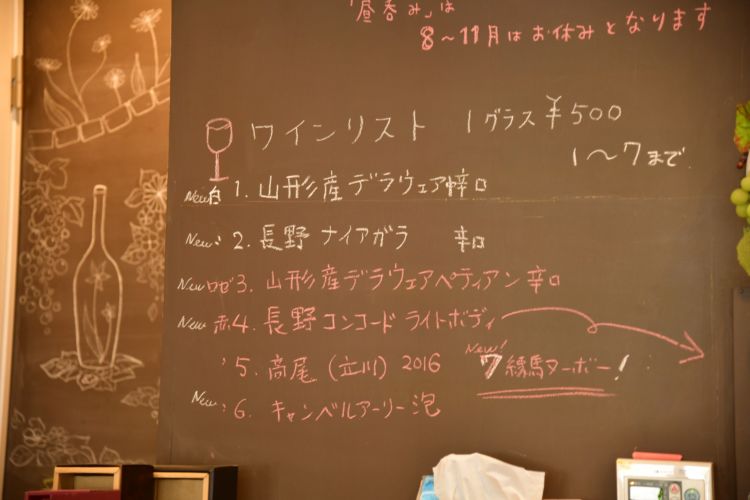 「昼呑み」は
8〜11月はお休みとなります
ワインリスト 1グラス¥500
1〜7まで
New 白 1. 山形産デラウェア 辛口
New 〃 2. 長野 ナイアガラ 辛口
New ロゼ 3. 山形産デラウェアペティアン 辛口
New 赤 4. 長野コンコード ライトボディ
〃 5. 高尾 (立川) 2016
New! 7 練馬ヌーボー!
New 〃 6. キャンベルアーリー 泡